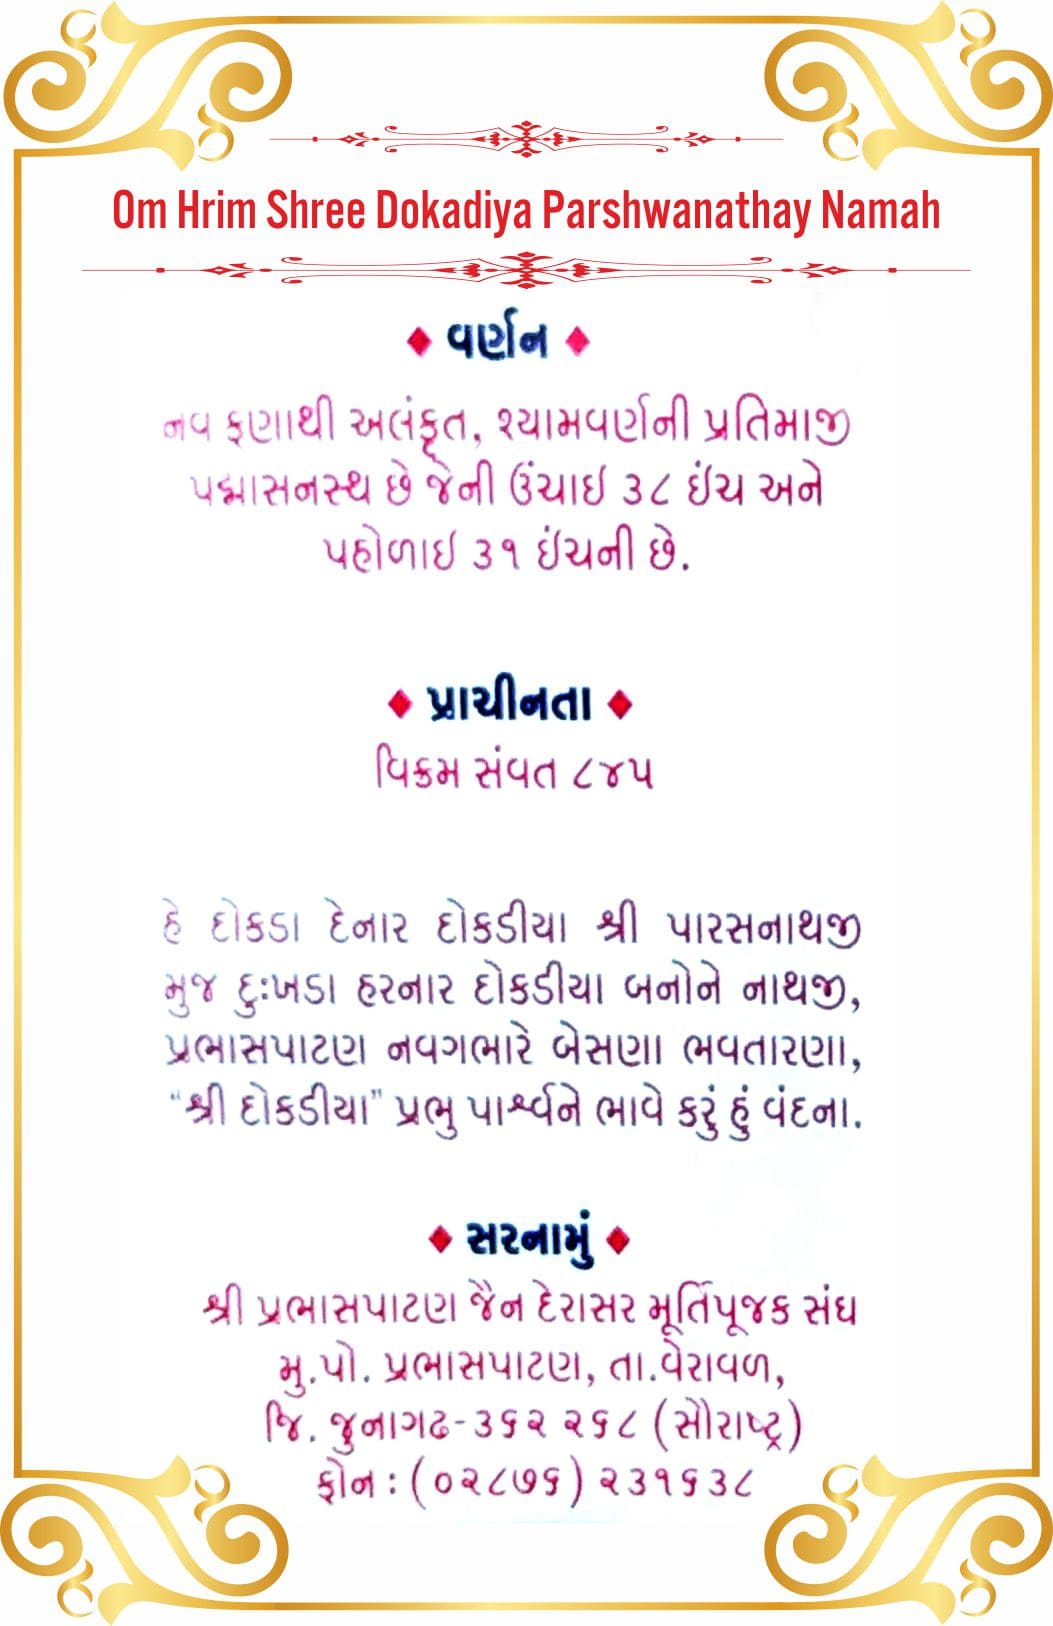 Om Hrim Shree Dokadiya Parshwanathay Namah
વર્ણન
નવ ફણાથી અલંકૃત, શ્યામવર્ણની પ્રતિમાજી
પદ્માસનસ્થ છે જેની ઉંચાઇ ૩૮ ઇંચ અને
પહોળાઇ ૩૧ ઇંચની છે.
પ્રાચીનતા
વિક્રમ સંવત ૮૪૫
હે દોકડા દેનાર દોકડીયા શ્રી પારસનાથજી
મુજ દુઃખડા હરનાર દોકડીયા બનોને નાથજી,
પ્રભાસપાટણ નવગભારે બેસણા ભવતારણા,
“શ્રી દોકડીયા” પ્રભુ પાર્શ્વને ભાવે કરું હું વંદના.
સરનામું
શ્રી પ્રભાસપાટણ જૈન દેરાસર મૂર્તિપૂજક સંઘ
મુ.પો. પ્રભાસપાટણ, તા.વેરાવળ,
જિ. જુનાગઢ-૩૬૨ ૨૬૮ (સૌરાષ્ટ્ર)
ફોન : (૦૨૮૭૬) ૨૩૧૬૩૮